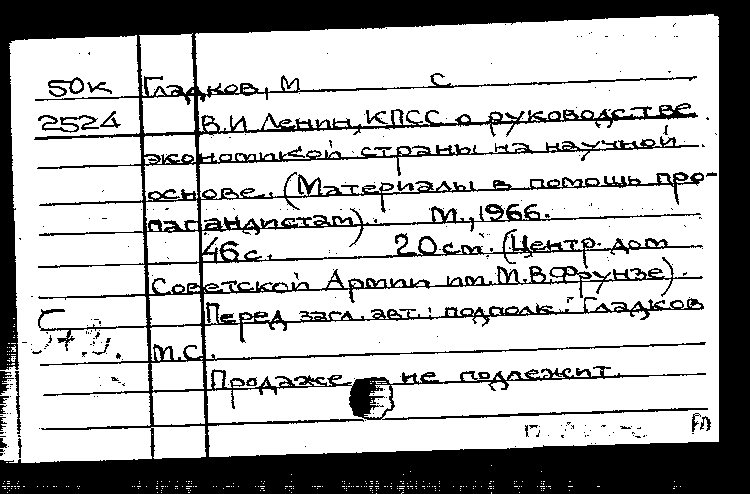 50к Гладков, М С
2524 В.И Ленин, КПСС о руководстве
экономикой страны на научной
основе. (Материалы в помощь про-
пагандистам). М., 1966.
46с. 20см. (Центр. дом
Советской Армии им. М.В.Фрунзе).
Перед загл. авт.: подполк. Гладков
М.С.
Продаже - не подлежит.